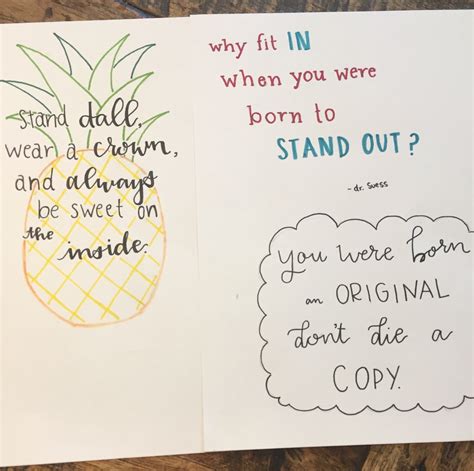 Stand dall,
wear a crown,
and always
be sweet on
the inside.
why fit IN
when you were
born to
STAND OUT?
- dr. Suess
you were born
an ORIGINAL
don't die a
COPY.